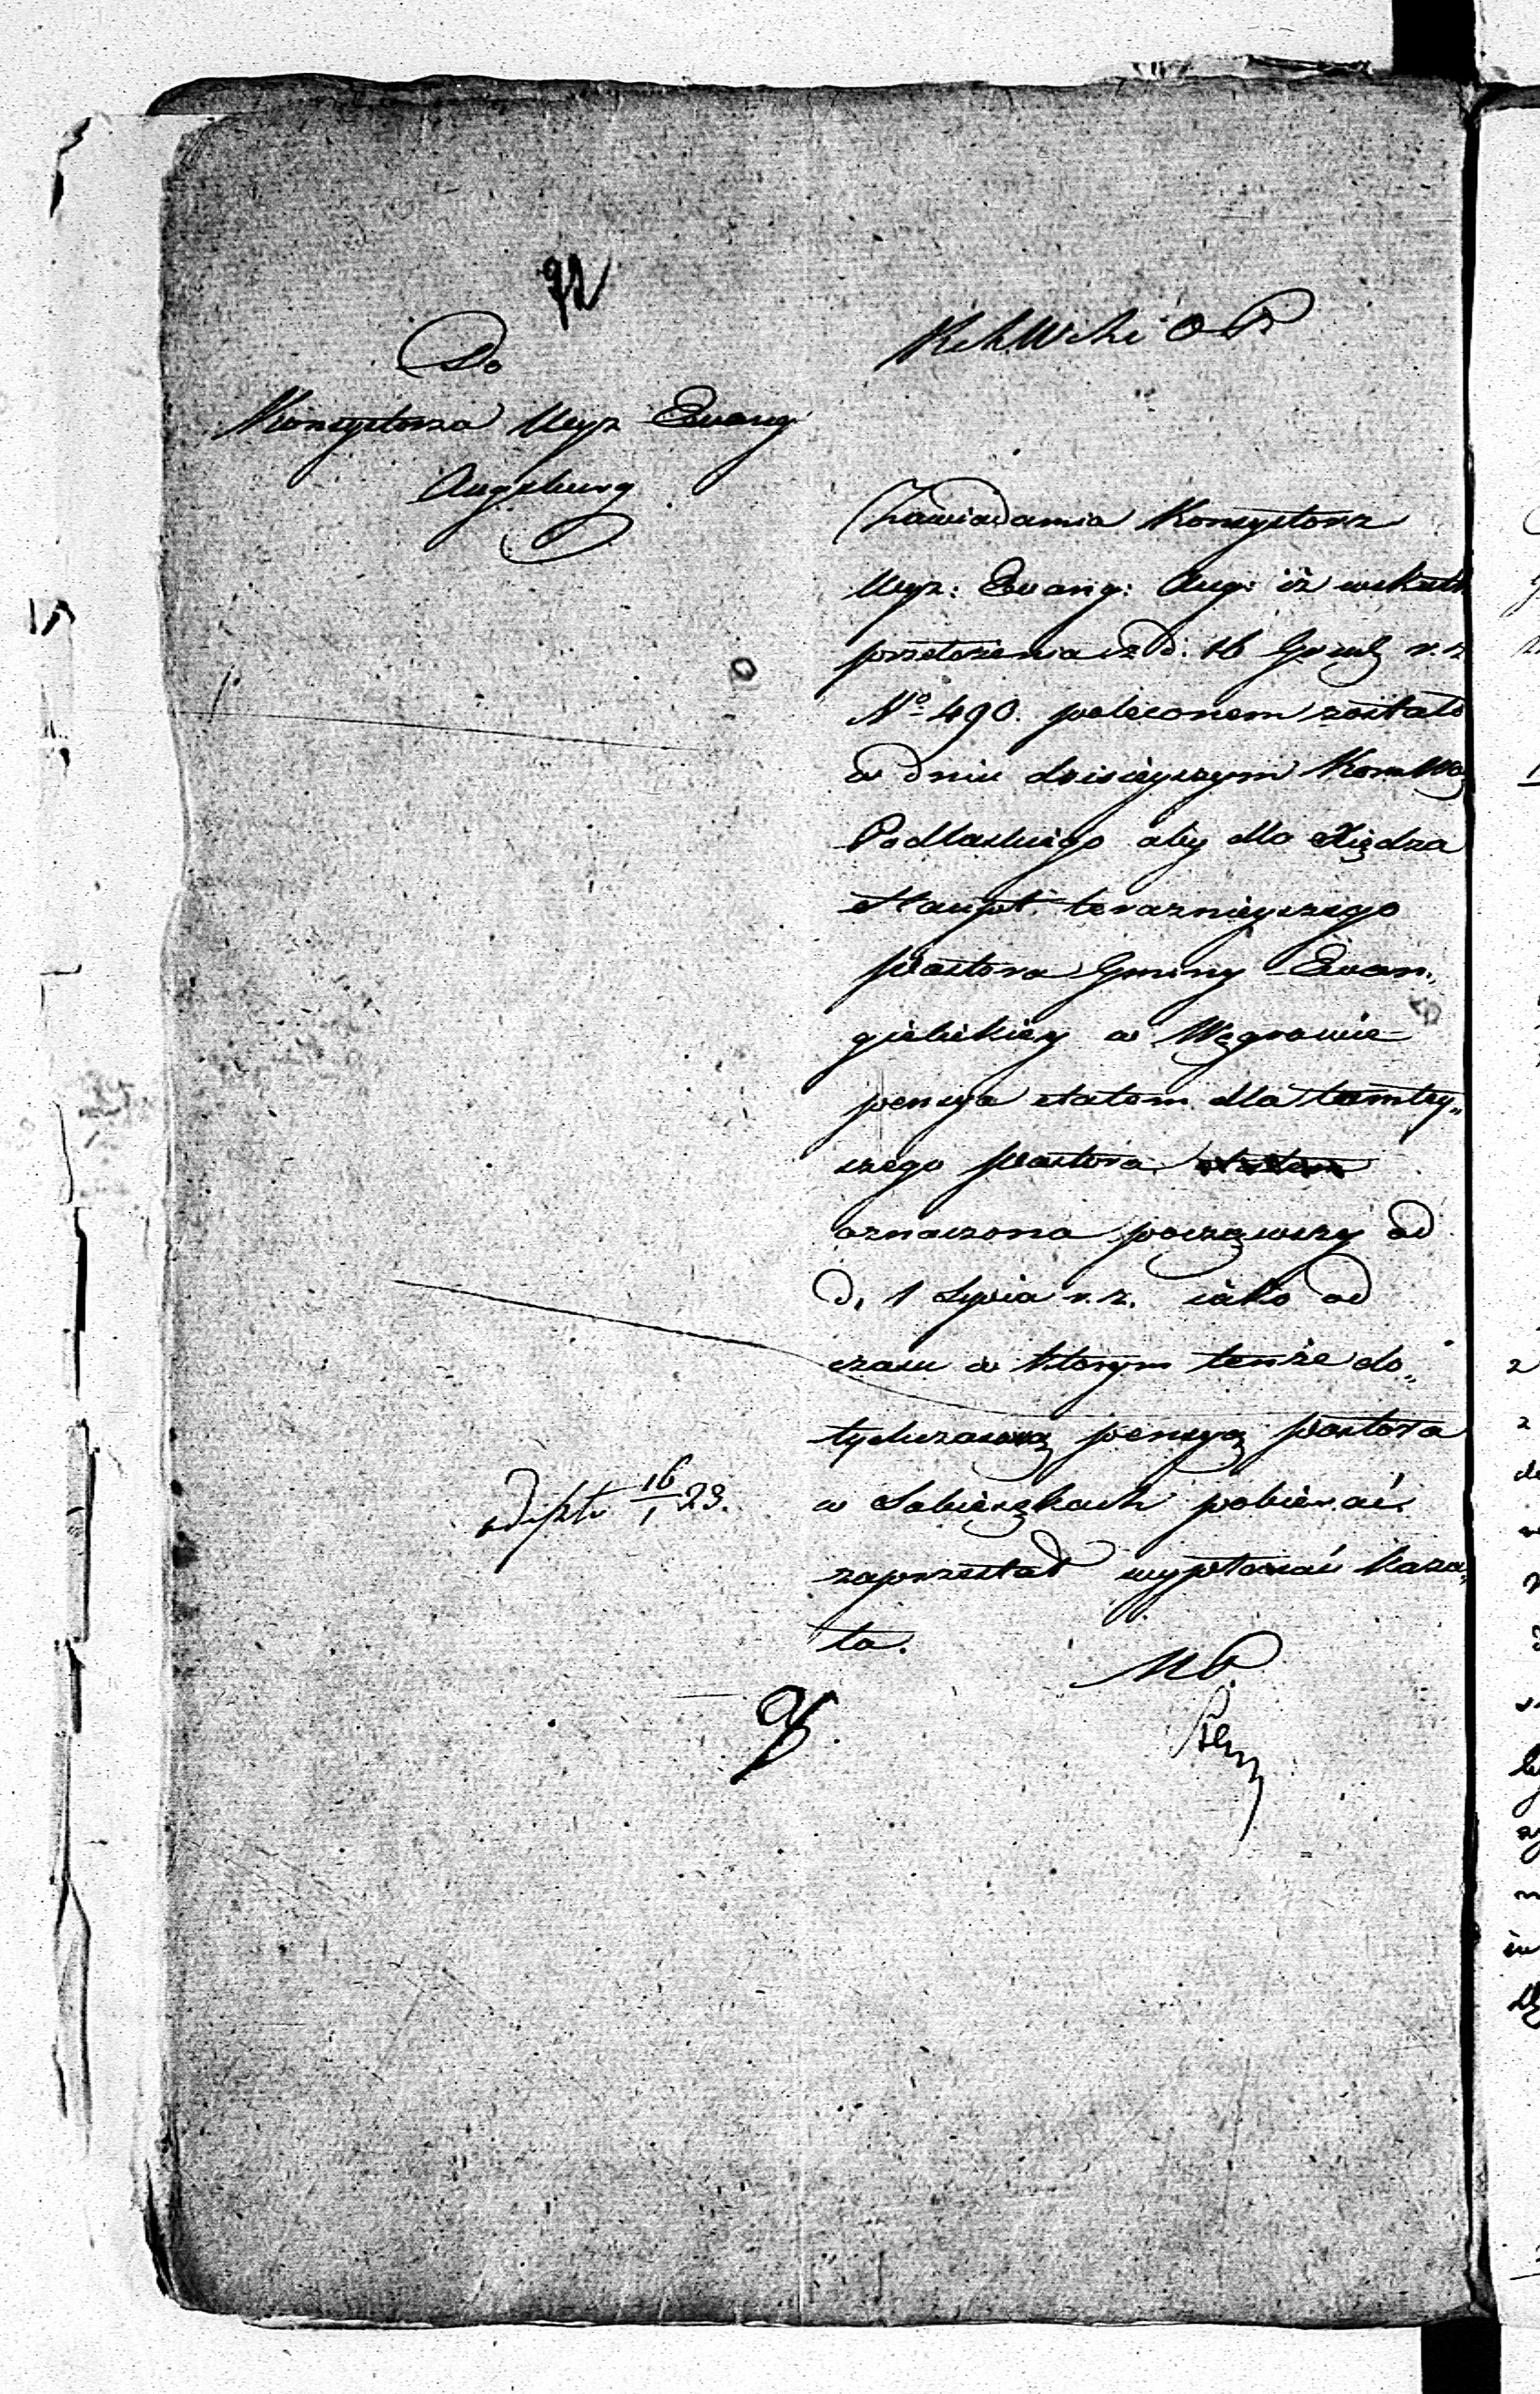 72
Do
Konsystorza Wyz Evang
Augsburg
Zawiadamia Konsystorz
Wyz: Evang: Aug: iż wskutk
przełożenia z d. 16 Grud r. z
No 490. poleconem zostało
w dniu dzisieyszym Kom Wo
Podlaskiego aby dla Xiędza
Haupt terazнieyszego
Pastora Gminy Evan„
gielickiey w Węgrowie
pensya etatem dla tamtey„
szego Pastora
oznaczona począwszy od
d. 1 Lipca r. z. iako od
czasu w którym tenże do„
tychczasową pensyą Pastora
w Sobieszkach pobierać
zaprzestał wypłacać kaza„
ła.
16/1 23.